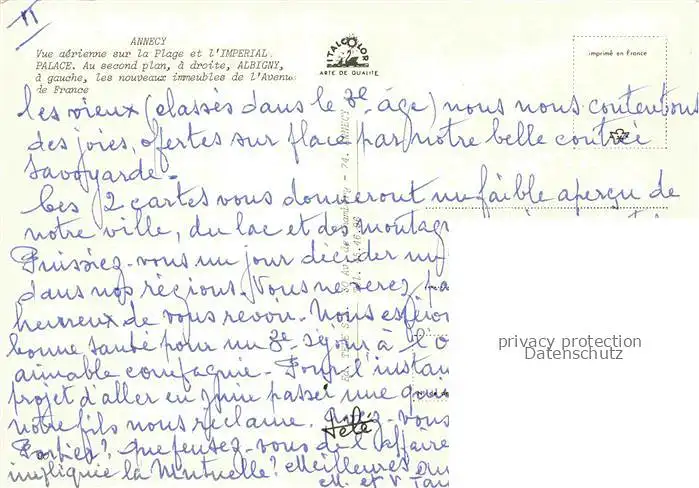 11
ANNECY
Vue aérienne sur la Plage et l'IMPERIAL
PALACE. Au second plan, à droite, ALBIGNY,
à gauche, les nouveaux immeubles de l'Avenue
de France
ITALCOLOR
ARTE DE QUALITE
imprimé en France
les vieux (classés dans le 3e âge) nous nous contentons
des joies, offertes sur place par notre belle contrée
savoyarde.
Ces 2 cartes vous donneront un faible aperçu de
notre ville, du lac et des montag
Puissiez-vous un jour décider
dans nos régions. Vous ne serez pa
heureux de vous revoir. Nous espéron
bonne santé pour un 3e séjour à l'O
aimable compagnie. Pour l'instan
projet d'aller en Juin passer une quin
notre fils nous réclame. -vous
Que pensez-vous de l'affaire
impliquée la Mutuelle? Meilleures
M. et
74. ANNECY
privacy protection
Datenschutz